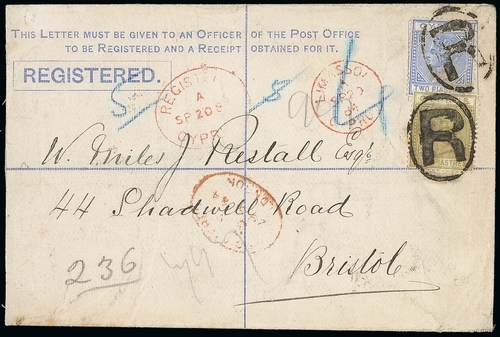 THIS LETTER MUST BE GIVEN TO AN OFFICER OF THE POST OFFICE
TO BE REGISTERED AND A RECEIPT OBTAINED FOR IT.
REGISTERED.
R
TWO PIA
REGISTE
A
SP 20 8
CYPR
LIMASSOL
R
W. Miles J. Restall Esqr
44 Shadwell Road
Bristol
236